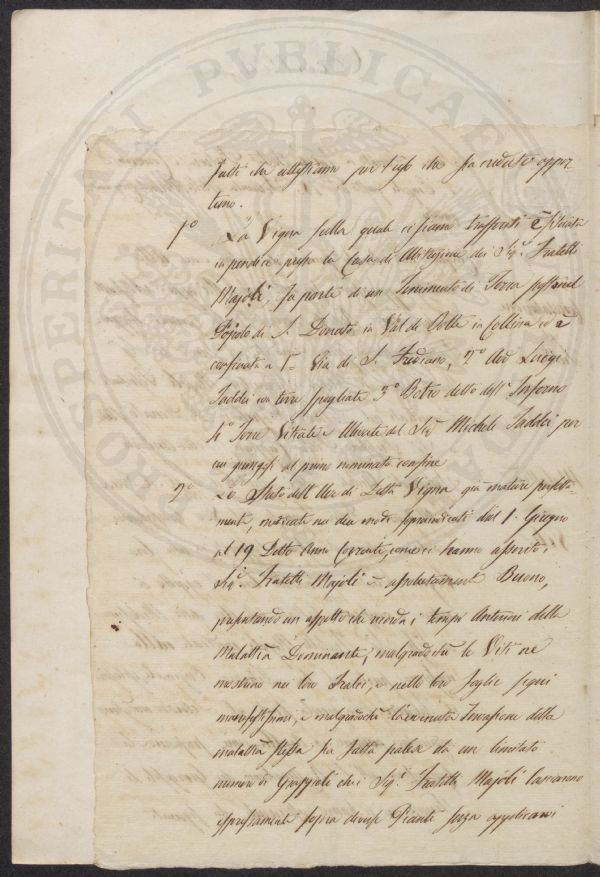 PROSPERITATI PVBLICAE
fatti che attestiamo per l'uso che sia creduto oppor
tuno.
1º La Vigna sulla quale ci siamo trasferiti è situata
in pendice presso la Casa di Abitazione dei Sig.i Fratelli
Majoli, fa parte di un Tenimento di Terra
Popolo di S. Donato in Val di Botte in Collina
confinata a 1º Via di S. Frediano, 2º Luigi
Taddei con terre spogliate 3º Botro detto dell'Inferno
4º Terre Vitate e Ulivate del Sig. Michele Taddei per
cui giungesi al primo nominato confine
2º Lo Stato dell'Uve di detta Vigna già mature perfetta-
mente, medicate nei due modi sopraindicati dal 1. Giugno
al 19 detto Anno Corrente, come ci hanno asserito i
Sig.i Fratelli Majoli è assolutamente Buono,
presentando un aspetto che ricorda i tempi Anteriori della
Malattia Dominante, malgrado che le Viti ne
mostrino nei loro Tralci, e nelle loro foglie segni
manifestissimi, e malgradochè l'avvenuta Invasione della
malattia stessa sia fatta palese da un limitato
numero di Grappoli che i Sig.i Fratelli Majoli lasciarono
espressamente sopra diverse Piante senza applicarvi